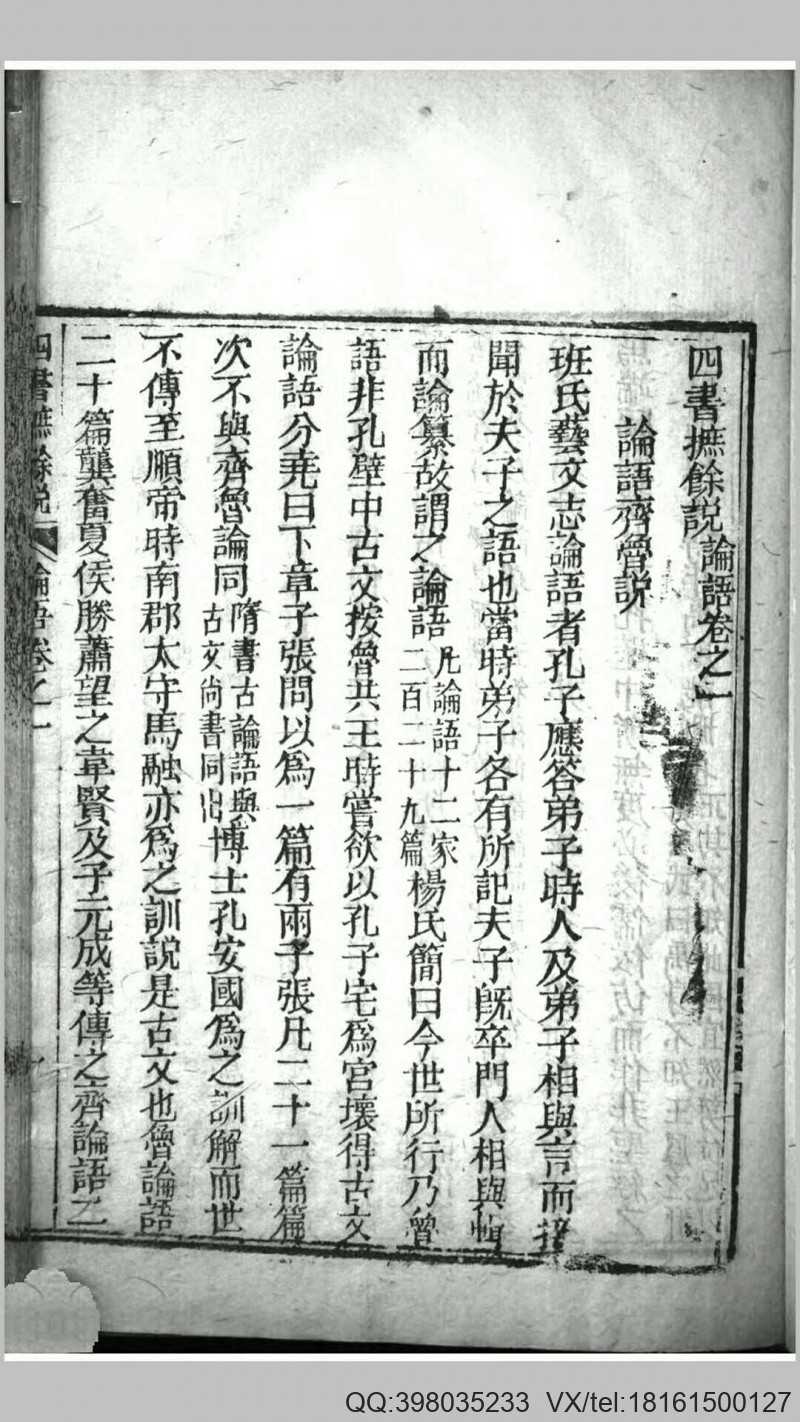 四書摭餘說論語卷之一
論語齊魯說
班氏藝文志論語者孔子應答弟子時人及弟子相與言而接
聞於夫子之語也當時弟子各有所記夫子旣卒門人相與輯
而論纂故謂之論語凡論語十二家二百二十九篇楊氏簡曰今世所行乃魯
語非孔壁中古文按魯共王時嘗欲以孔子宅爲宮壞得古文
論語分堯曰下章子張問以爲一篇有兩子張凡二十一篇篇
次不與齊魯論同隋書古論語與古文尚書同出博士孔安國爲之訓解而世
不傳至順帝時南郡太守馬融亦爲之訓說是古文也魯論語
二十篇龔奮夏侯勝蕭望之韋賢及子元成等傳之齊論語二
四書摭餘說 論語卷之一
QQ:398035233 VX/tel:18161500127